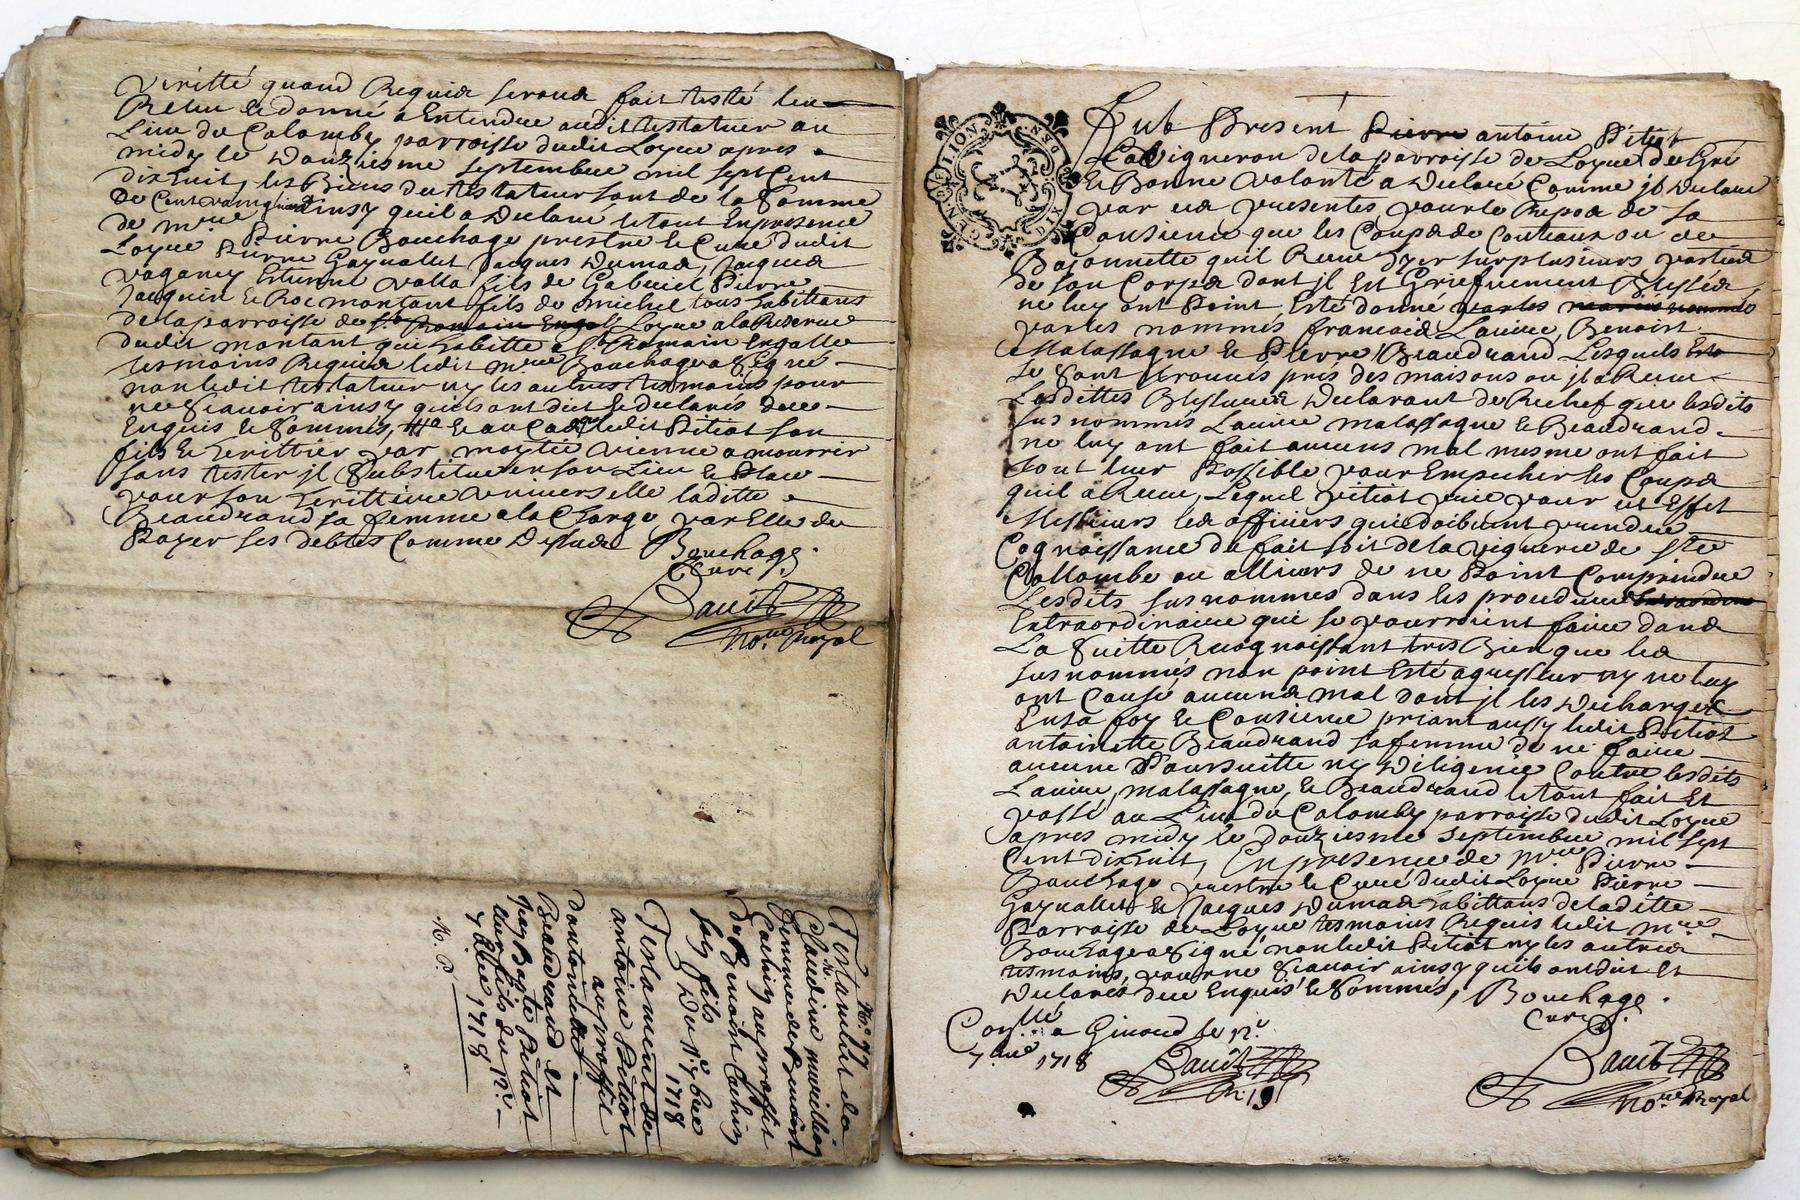 veritté quand Requis seroud fait testé leu
Releu & donné a Entendre audit testateur au
Lieu du Colomby parroisse dudit Loyre apres
midy le Douziesme septembre mil sept Cent
dix huit, les Biens du testateur sont de la somme
de Cent vaingt ainsy quil a Declaré le tout En presence
de mre Pierre Bouchage prestre & Curé dudit
Loyre Pierre Gaynallet Jacques Dumas, Jacques
vaganey Estienne valla fils de Gabriel Pierre
Jacquin & Roc montant fils de michel tous habittans
de la parroisse de St Romain Engal Loyre a la Reserve
dudit montant qui habitte a St Romain Engalle
tesmoins Requis ledit mre Bouchage a signé
non ledit testateur ny les autres tesmoins pour
ne sçavoir ainsy quils ont dit & declarés deue
Enquis & sommés, & au Cas ledit Pitiot son
fils & heritier par moytié vienne a mourrir
sans tester jl substitue en son Lieu & Place
pour son heritiere universelle laditte
Beaudrand sa femme a la Charge par Elle de
Payer ses debtes Comme Dessus Bouchage
Curé
Bauit
nore royal
No. 97
Testament de
Claudine
femme de Benoist
Cachiz au proffit
de Benoist Cachiz
son fils
Du 7bre
1718
Testament de
antoine Pitiot
au proffit
dantoinette
Beaudrand et
Jean Baptte Pitiot
leur fils du 12e
7bre 1718
Fut Present Pierre antoine Pitiot
Vigneron de la parroisse de Loyre de Gré
& Bonne volonté a Declaré Comme jl Declare
par ces presentes pour le Repos de sa
Consience que les Coups de Couteaux ou de
Bajonnette quil Reçeu hyer sur plusieurs parties
de son Corps dont jl Est Griefvement Blessés,
ne luy ont Point Esté donné par les
par les nommés françois Laurier, Benoist
Malassagne & Pierre Beaudrand Lesquels
se sont trouvés pres des maisons ou jl a Receu
Lesdittes Blessures Declarant de Rechef que lesdits
susnommés Laurier malassagne & Beaudrand
ne luy ont fait aucuns mal mesme ont fait
tout leur Possible pour Empecher les Coups
quil a Receu, Lequel Pitiot prie pour cet Effet
Messieurs les officiers qui doibvent prendre
Cognoissance du fait soit de la viguerie de Ste
Collombe ou allieurs de ne Point Comprendre
Lesdits susnommés dans les procedures
Extraordinaire qui se pourroient faire dans
La suitte Recognoissant tres Bien que les
susnommés non point Esté agresseur ny ne luy
ont Causé aucuns mal dont jl les Decharge
En sa foy & Consience priant aussy ledit Pitiot
antoinette Beaudrand sa femme de ne faire
aucune Poursuitte ny Diligence Contre lesdits
Laurier, malassagne, & Beaudrand le tout fait Et
passé au Lieu du Colomby parroisse dudit Loyre
apres midy le Douziesme septembre mil sept
Cent dix huit, En presence de mre Pierre
Bouchage prestre & Curé dudit Loyre Pierre
Gaynallet & Jacques Dumas habittans de laditte
Parroisse de Loyre tesmoins Requis ledit mre
Bouchage a signé non ledit Pitiot ny les autres
tesmoins, pour ne sçavoir ainsy quils ont dit Et
Declarés deue Enquis & sommés, Bouchage
Curé
Conllé a Givord le 12e
7bre 1718
Bauit
Bauit
nore Royal
GEN DE LION
DIX DEN